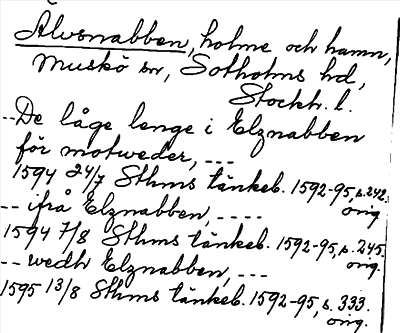 Älvsnabben, holme och hamn,
Muskö sn, Sotholms hd,
Stockh. l.
-- De låge lenge i Elznabben
för motweder, ---
1594 24/7 Sthms tänkeb. 1592-95, s. 242.
orig.
-- ifrå Elznabben, ----
1594 7/8 Sthms tänkeb. 1592-95, s. 245.
orig.
-- wedh Elznabben, ---
1595 13/8 Sthms tänkeb. 1592-95, s. 333.
orig.